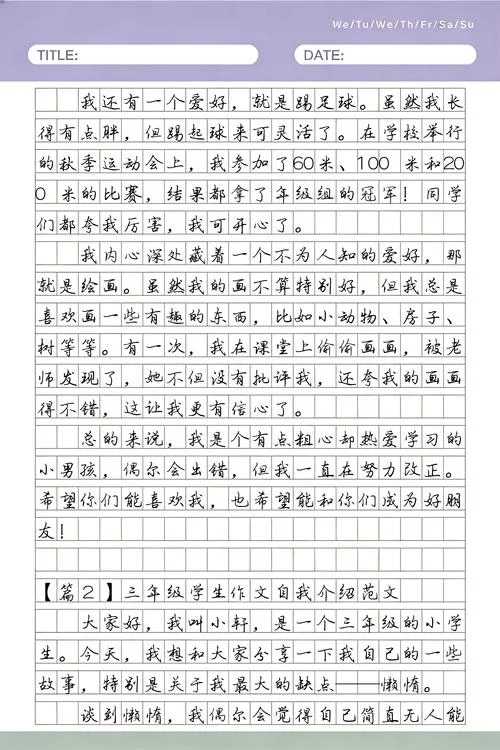 We/Tu/We/Th/Fr/Sa/Su
TITLE:
DATE:
我还有一个爱好，就是踢足球。虽然我长
得有点胖，但踢起球来可灵活了。在学校举行
的秋季运动会上，我参加了60米、100 米和20
0 米的比赛，结果都拿了年级组的冠军！同学
们都夸我厉害，我可开心了。
我内心深处藏着一个不为人知的爱好，那
就是绘画。虽然我的画不算特别好，但我总是
喜欢画一些有趣的东西，比如小动物、房子、
树等等。有一次，我在课堂上偷偷画画，被老
师发现了，她不但没有批评我，还夸我的画画
得不错，这让我更有信心了。
总的来说，我是个有点粗心却热爱学习的
小男孩，偶尔会出错，但我一直在努力改正。
希望你们能喜欢我，也希望能和你们成为好朋
友！
【篇2】三年级学生作文自我介绍范文
大家好，我叫小轩，是一个三年级的小学
生。今天，我想和大家分享一下我自己的一些
故事，特别是关于我最大的缺点——懒惰。
谈到懒惰，我偶尔会觉得自己简直无人能